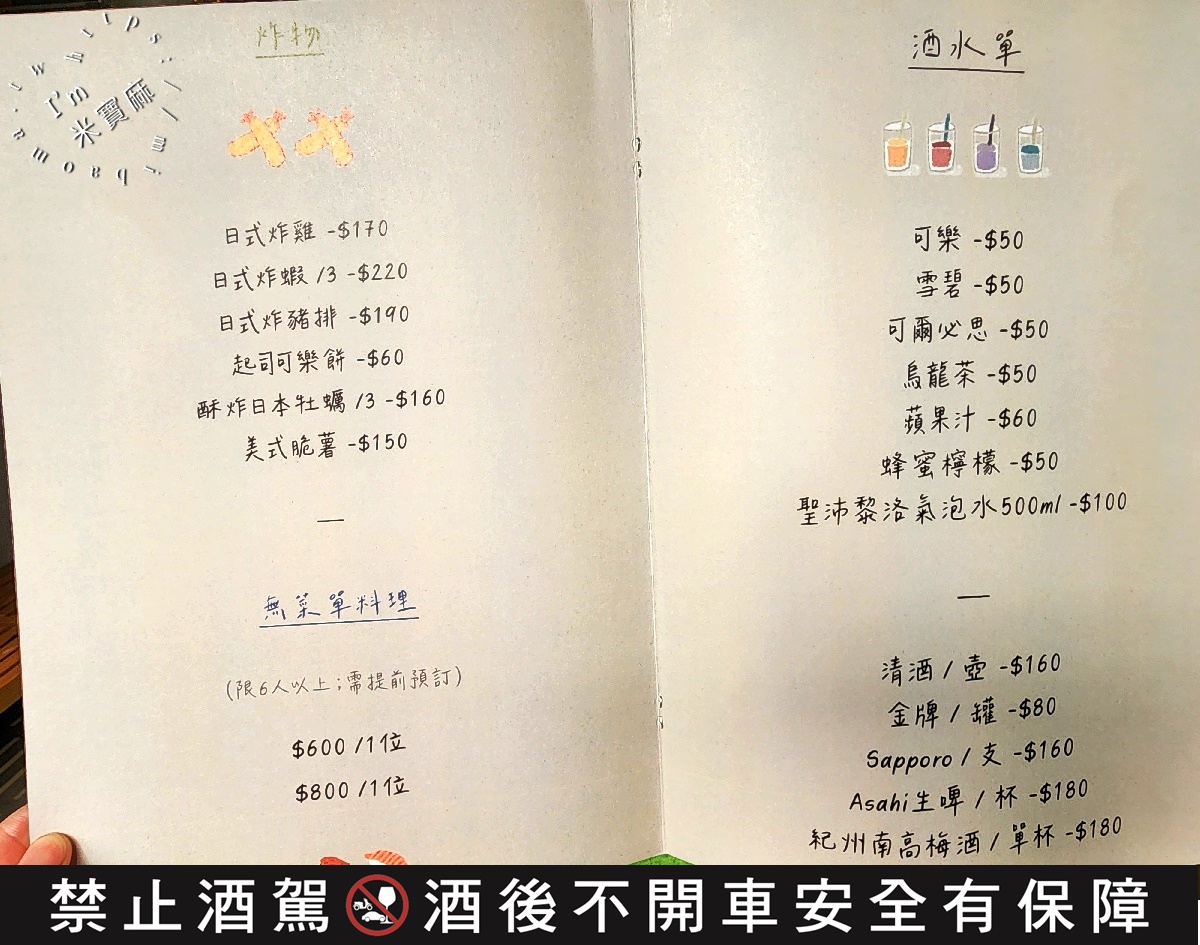 https://mibaoma.tw
I'm
米寶麻
炸物
日式炸雞 -$170
日式炸蝦 /3 -$220
日式炸豬排 -$190
起司可樂餅 -$60
酥炸日本牡蠣 /3 -$160
美式脆薯 -$150
—
無菜單料理
(限6人以上;需提前預訂)
$600 /1位
$800 /1位
酒水單
可樂 -$50
雪碧 -$50
可爾必思 -$50
烏龍茶 -$50
蘋果汁 -$60
蜂蜜檸檬 -$50
聖沛黎洛氣泡水500ml -$100
—
清酒 / 壺 -$160
金牌 / 罐 -$80
Sapporo / 支 -$160
Asahi生啤 / 杯 -$180
紀州南高梅酒 / 單杯 -$180
禁止酒駕 酒後不開車安全有保障